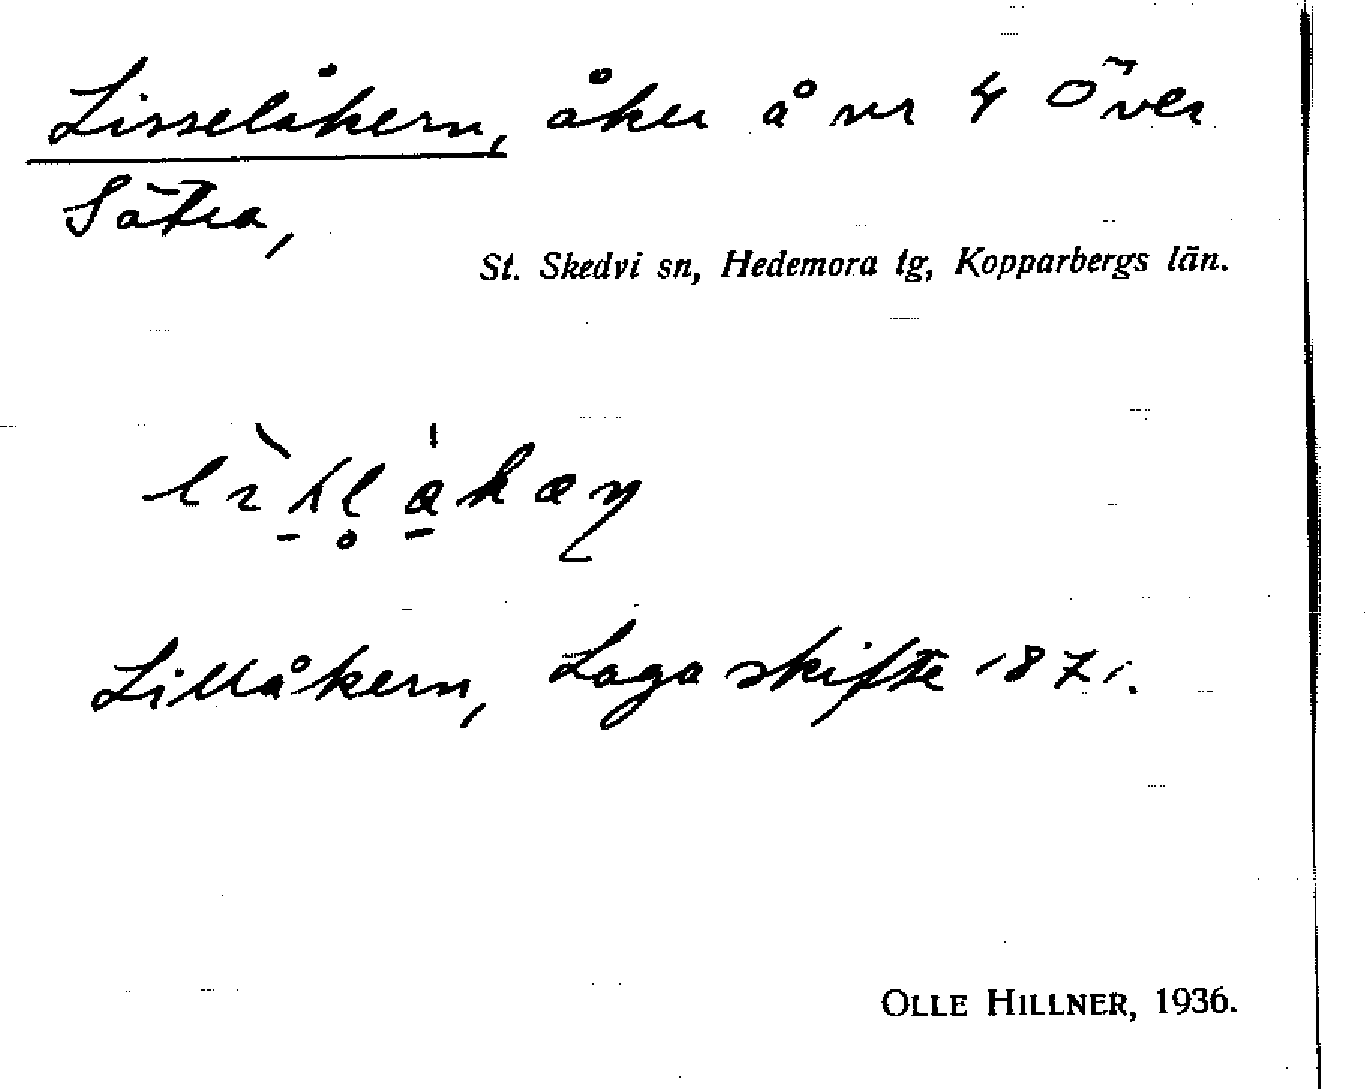 Lisselåkern, åker å nr 4 Över
Sätra,
St. Skedvi sn, Hedemora tg, Kopparbergs län.
Lillåkern, Laga skifte 1871.
OLLE HILLNER, 1936.